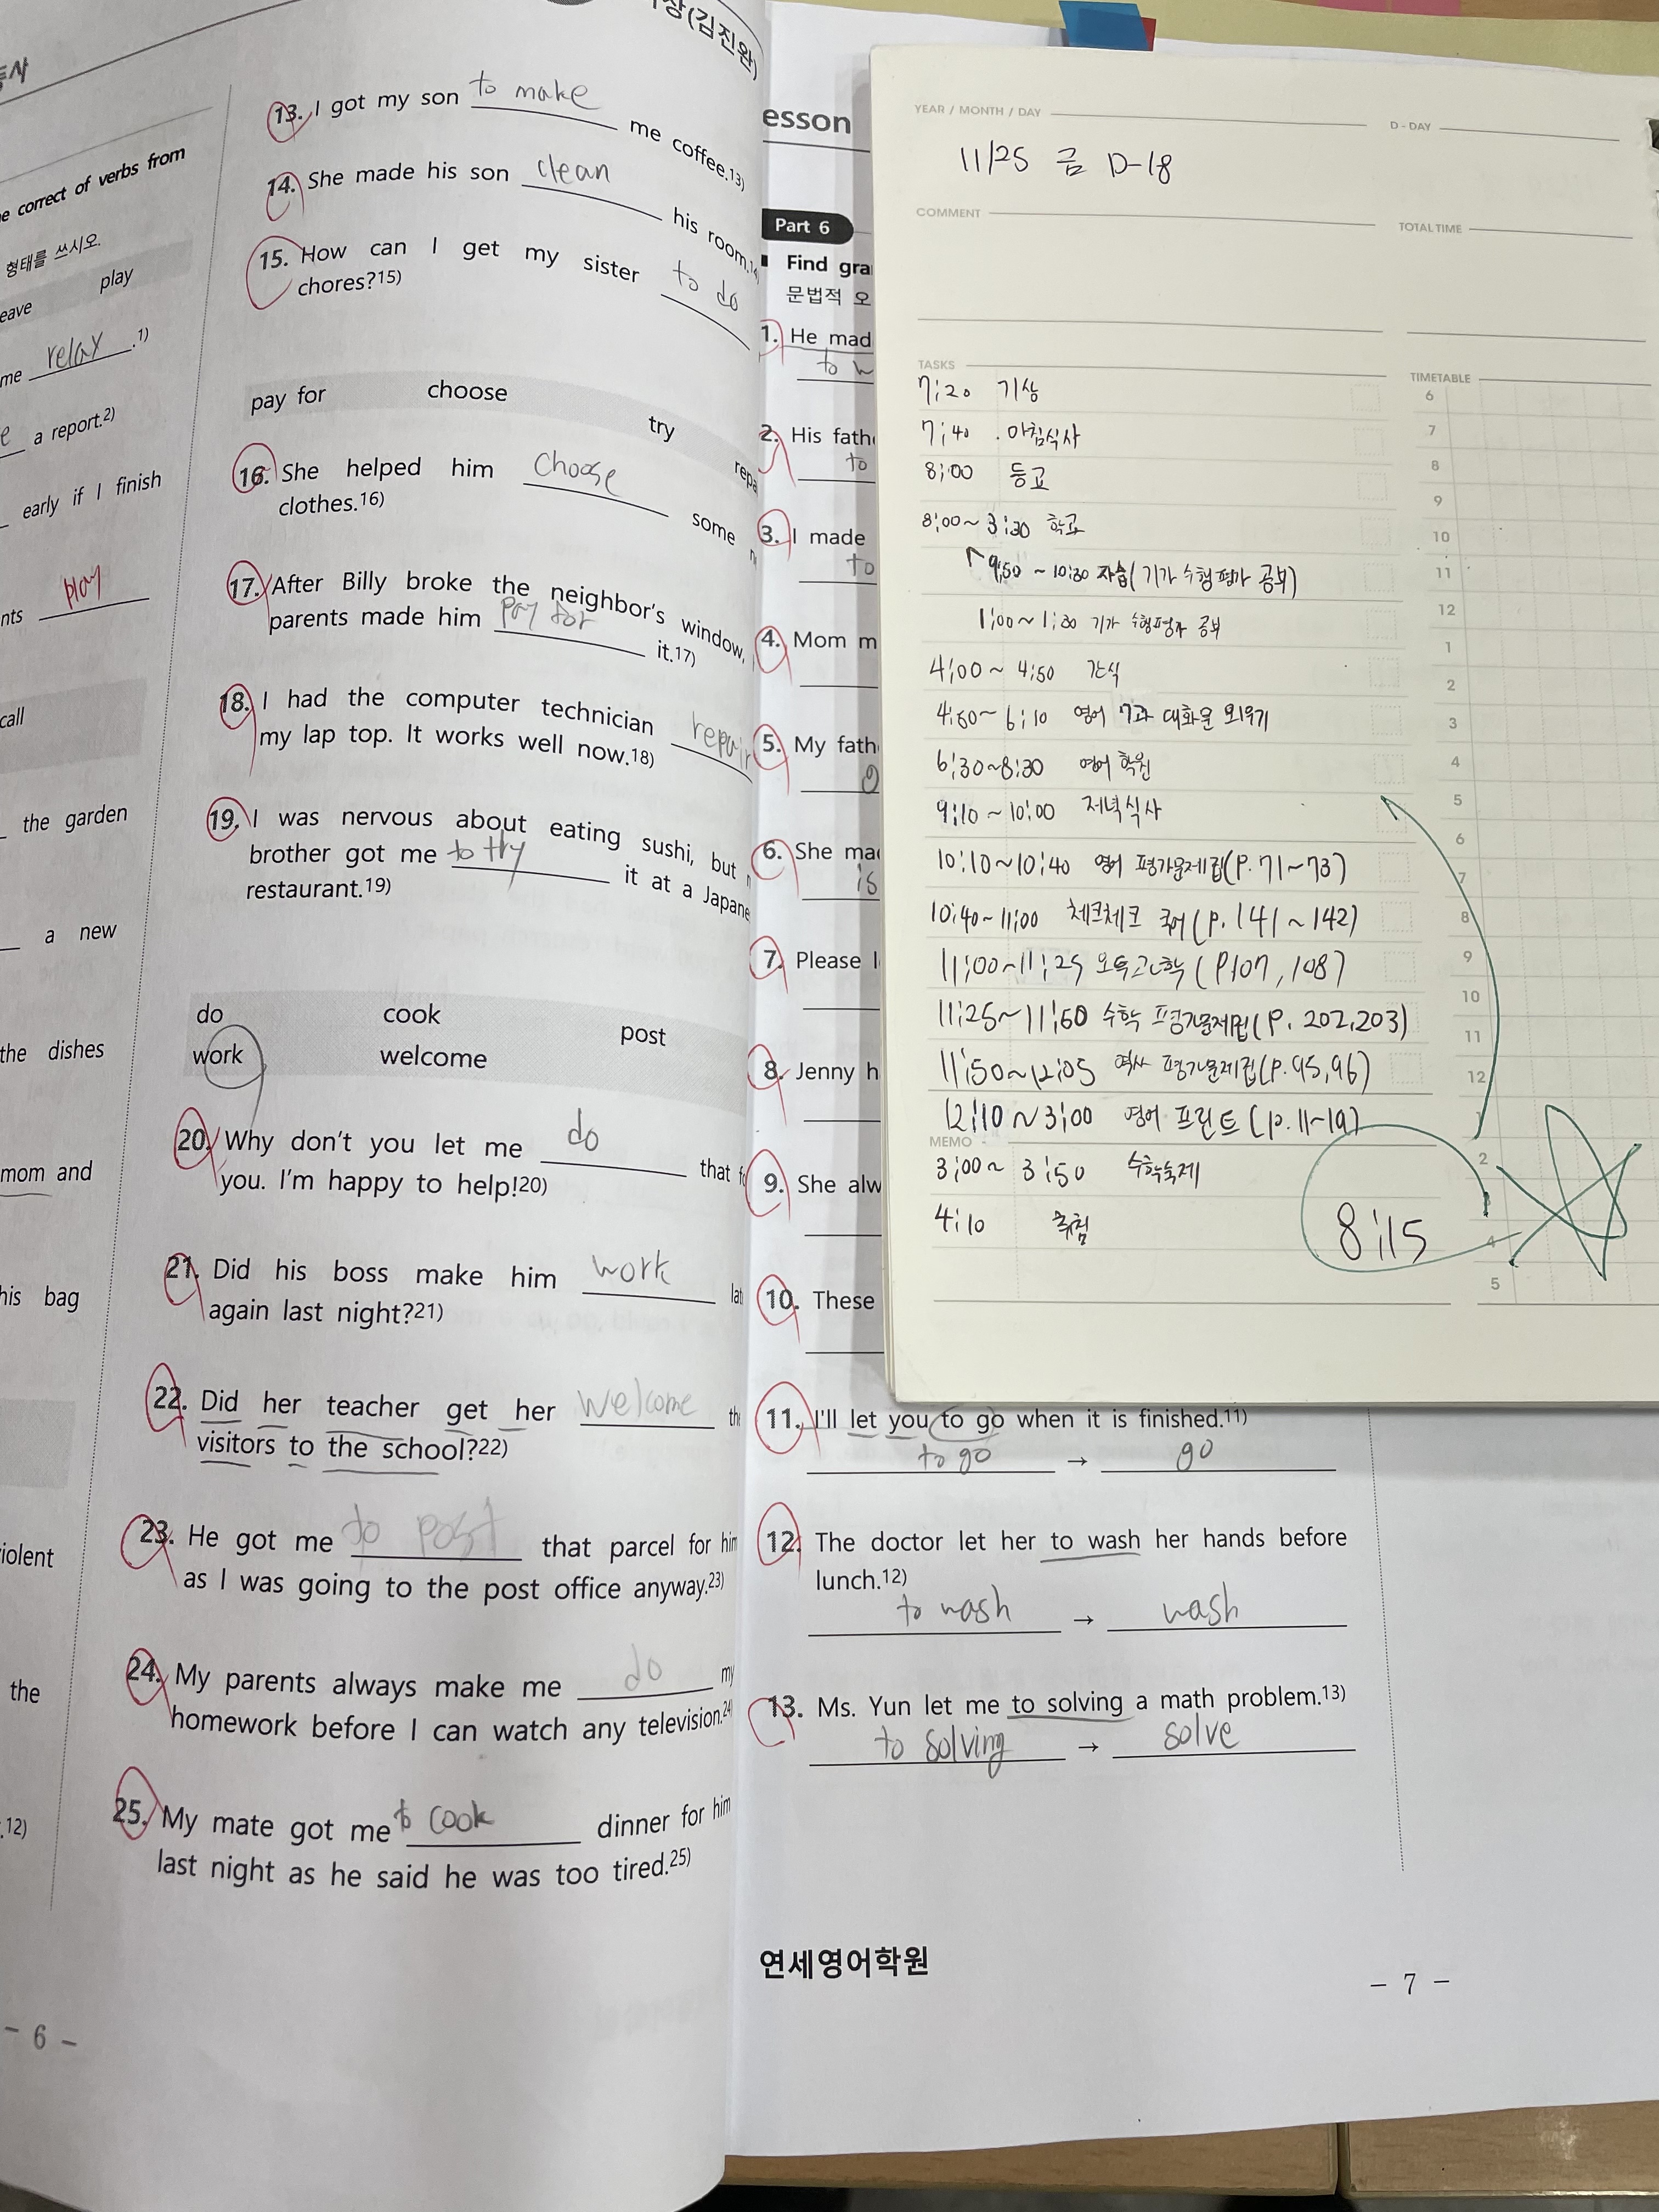 동사
e correct of verbs from
형태를 쓰시오.
eave play
me relax .1)
e a report.2)
early if I finish
nts play
call
the garden
a new
the dishes
mom and
his bag
violent
the
.12)
- 6 -
상(김진완)
13. I got my son to make me coffee.13)
14. She made his son clean his room.14)
15. How can I get my sister to do
chores?15)
pay for choose try repa
16. She helped him choose some n
clothes.16)
17. After Billy broke the neighbor's window,
parents made him pay for it.17)
18. I had the computer technician repair
my lap top. It works well now.18)
19. I was nervous about eating sushi, but
brother got me to try it at a Japane
restaurant.19)
do cook post
work welcome
20. Why don't you let me do that f
you. I'm happy to help!20)
21. Did his boss make him work lat
again last night?21)
22. Did her teacher get her welcome th
visitors to the school?22)
23. He got me to post that parcel for him
as I was going to the post office anyway.23)
24. My parents always make me do my
homework before I can watch any television.24)
25. My mate got me to cook dinner for him
last night as he said he was too tired.25)
esson
Part 6
Find gra
문법적 오
1. He mad
to
2. His fath
to
3. I made
to
4. Mom m
5. My fath
6. She ma
is
7. Please l
8. Jenny h
9. She alw
10. These
11. I'll let you to go when it is finished.11)
to go → go
12. The doctor let her to wash her hands before
lunch.12)
to wash → wash
13. Ms. Yun let me to solving a math problem.13)
to solving → solve
연세영어학원
- 7 -
YEAR / MONTH / DAY D-DAY
11/25 금 D-18
COMMENT TOTAL TIME
TASKS TIMETABLE
7:20 기상
7:40 아침식사
8:00 등교
8:00~3:30 학교
9:50~10:30 자습(기가 수행평가 공부)
1:00~1:30 기가 수행평가 공부
4:00~4:50 간식
4:50~6:10 영어 7과 대화문 외우기
6:30~8:30 영어 학원
9:10~10:00 저녁식사
10:10~10:40 영어 평가문제집(P.71~73)
10:40~11:00 체크체크 국어(P.141~142)
11:00~11:25 오투과학(P107,108)
11:25~11:50 수학 평가문제집(P.202,203)
11:50~12:05 역사 평가문제집(P.95,96)
12:10~3:00 영어 프린트(p.11~19)
MEMO
3:00~3:50 수학숙제
4:10 취침
8:15
6
7
8
9
10
11
12
1
2
3
4
5
6
7
8
9
10
11
12
1
2
3
4
5